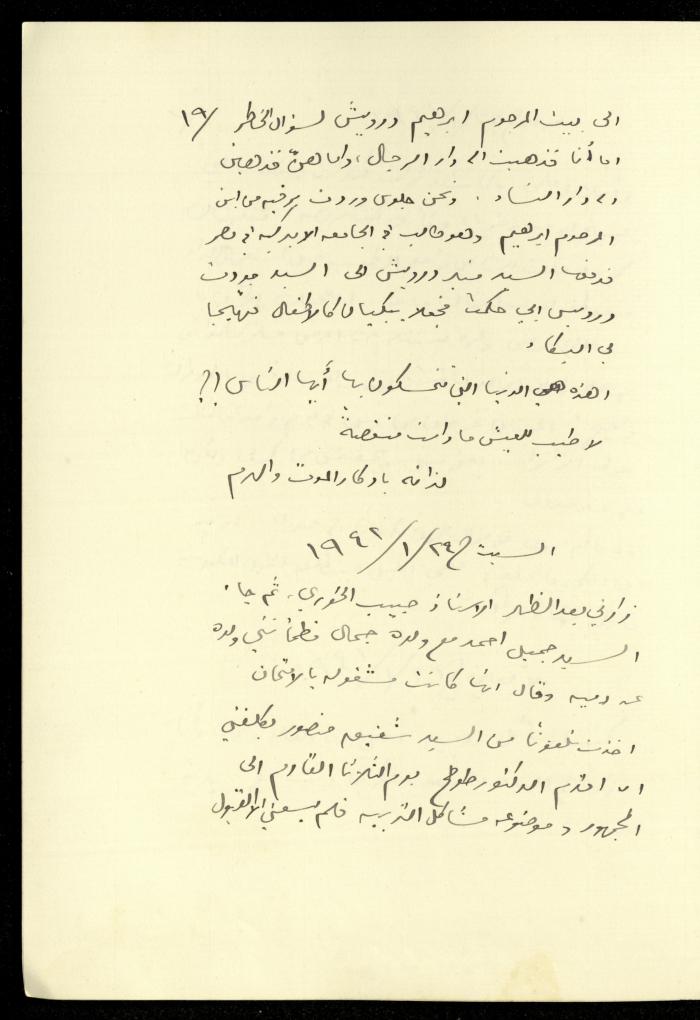 الى بيت المرحوم ابرهيم درويش لسؤال الخاطر /١٩
اما أنا فذهبت الى دار الرجال، واما هنّ فذهبن
الى دار النساء. ونحن جلوس وردت برقيه من ابن
المرحوم ابرهيم وهو طالب في الجامعه الاميركيه في مصر
فدفعها السيد منير درويش الى السيد جودت
درويش ابي حكمت فجعلا يبكيان كالاطفال فهيّجا
بي البكاء
اهذه هي الدنيا التي تتمسكون بها أيها الناس !؟
لا طيب للعيش ما دامت منغصةً
لذاته بادكار الموت والهرم
السبت في ٢٤/١/١٩٤٢
زارني بعد الظهر الاستاذ حبيب الخوري، ثم جاء
السيد جميل احمد مع ولده جمال فطمأنني ولده
عن دميه وقال انها كانت مشغوله بالامتحان
اخذت تلفونا من السيد شفيق منصور يكلفني
ان اقدم الدكتور طوطح يوم الثلاثا القادم الى
الجمهور وموضوعه مشاكل التربيه فلم يسعني الا القبول